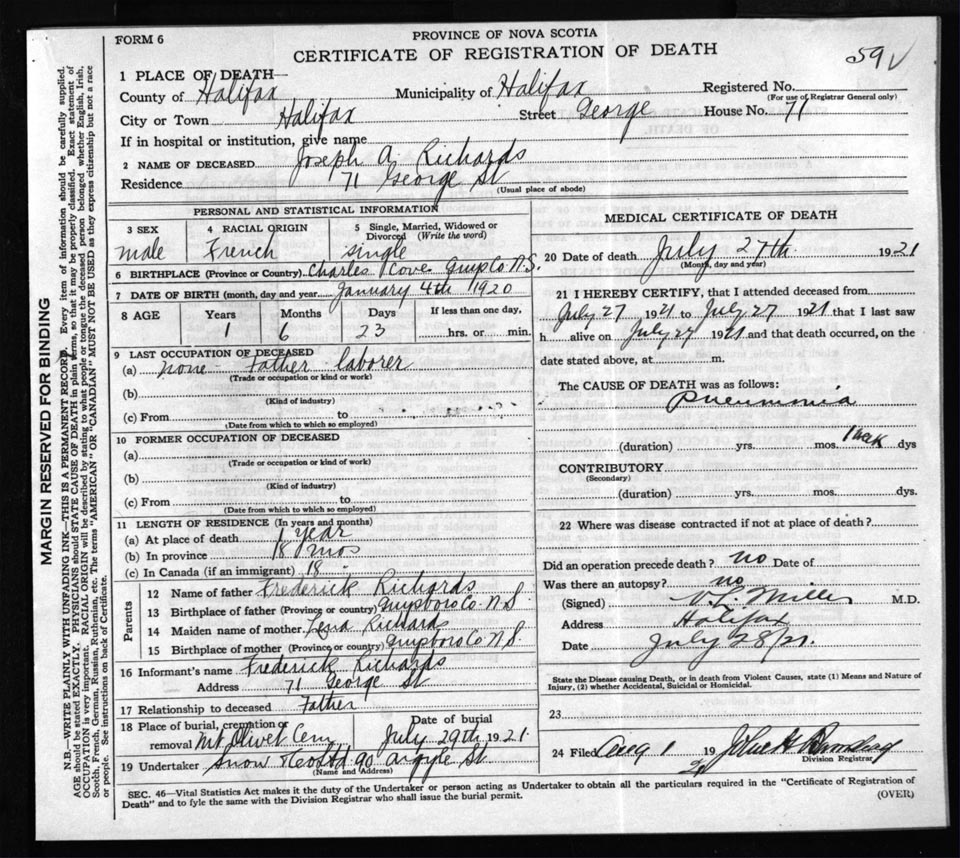 FORM 6
PROVINCE OF NOVA SCOTIA
CERTIFICATE OF REGISTRATION OF DEATH
59
1 PLACE OF DEATH—
County of Halifax Municipality of Halifax Registered No.
(For use of Registrar General only)
City or Town Halifax Street George House No. 71
If in hospital or institution, give name
2 NAME OF DECEASED Joseph A. Richards
Residence 71 George St
(Usual place of abode)
PERSONAL AND STATISTICAL INFORMATION
3 SEX 4 RACIAL ORIGIN 5 Single, Married, Widowed or Divorced (Write the word)
male French single
6 BIRTHPLACE (Province or Country) Charles Cove Guys Co. N.S.
7 DATE OF BIRTH (month, day and year) January 4th 1920
8 AGE Years Months Days If less than one day,
1 6 23 hrs. or min.
9 LAST OCCUPATION OF DECEASED
(a) none - Father laborer
(Trade or occupation or kind or work)
(b)
(Kind of industry)
(c) From to
(Date from which to which so employed)
10 FORMER OCCUPATION OF DECEASED
(a)
(Trade or occupation or kind of work)
(b)
(Kind of industry)
(c) From to
(Date from which to which so employed)
11 LENGTH OF RESIDENCE (In years and months)
(a) At place of death 1 year
(b) In province 18 mos
(c) In Canada (if an immigrant) 18
Parents
12 Name of father Frederick Richards
13 Birthplace of father (Province or country) Guysboro Co N.S.
14 Maiden name of mother Richards
15 Birthplace of mother (Province or country) Guysboro Co N.S.
16 Informant's name Frederick Richards
Address 71 George St
17 Relationship to deceased Father
18 Place of burial, cremation or removal Mt. Olivet Cem Date of burial July 29th 1921
19 Undertaker Snow & Co Ltd 90 Argyle St
(Name and Address)
MEDICAL CERTIFICATE OF DEATH
20 Date of death July 27th 1921
(Month, day and year)
21 I HEREBY CERTIFY, that I attended deceased from
July 27 1921 to July 27 1921 that I last saw
h alive on July 27 1921 and that death occurred, on the
date stated above, at m.
The CAUSE OF DEATH was as follows:
Pneumonia
(duration) yrs. mos. 1 week dys
CONTRIBUTORY
(Secondary)
(duration) yrs. mos. dys.
22 Where was disease contracted if not at place of death?
Did an operation precede death? no Date of
Was there an autopsy? no
(Signed) Miller M.D.
Address Halifax
Date July 28/21.
State the Disease causing Death, or in death from Violent Causes, state (1) Means and Nature of
Injury, (2) whether Accidental, Suicidal or Homicidal.
23
24 Filed Aug 1 1921 John H
Division Registrar
SEC. 46—Vital Statistics Act makes it the duty of the Undertaker or person acting as Undertaker to obtain all the particulars required in the "Certificate of Registration of
Death" and to fyle the same with the Division Registrar who shall issue the burial permit.
(OVER)
MARGIN RESERVED FOR BINDING
N.B.—WRITE PLAINLY WITH UNFADING INK—THIS IS A PERMANENT RECORD. Every item of information should be carefully supplied.
AGE should be stated EXACTLY. PHYSICIANS should STATE CAUSE OF DEATH in plain terms, so that it may be properly classified. Exact statement of
OCCUPATION is very important. RACIAL ORIGIN will be described by stating to what people or tongue the deceased person belonged whether English, Irish,
Scotch, French, German, Russian, Ruthenian, etc. The terms "AMERICAN" OR "CANADIAN" MUST NOT BE USED as they express citizenship but not a race
or people. See instructions on back of Certificate.